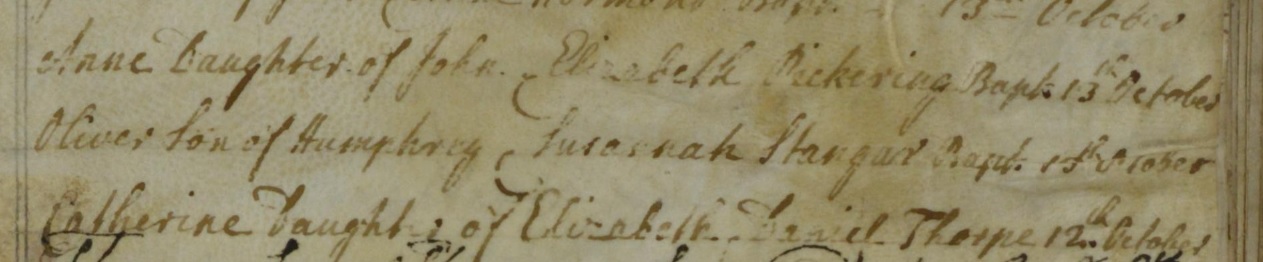 13th October
Anne Daughter of John Elizabeth Pickering Bapt: 13th October
Oliver Son of Humphrey Susannah Stangar Bapt. October
Catherine Daughter of Elizabeth Daniel Thorpe 12th October